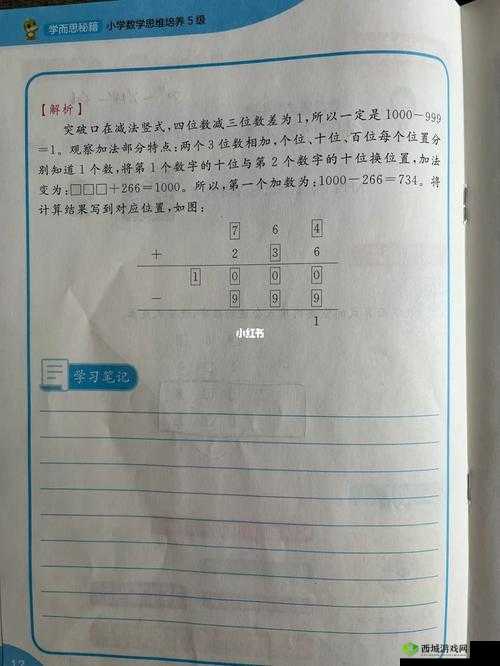 学而思秘籍 小学数学思维培养5级
【解析】
突破口在减法竖式,四位数减三位数差为1,所以一定是1000-999
=1。观察加法部分特点:两个3位数相加,个位、十位、百位每个位置分
别知道1个数,将第1个数字的十位与第2个数字的十位换位置,加法
变为:□□□+266=1000。所以,第一个加数为:1000-266=734。将
计算结果写到对应位置,如图:
7 6 4
+ 2 3 6
1 0 0 0
- 9 9 9
1
小红书
学习笔记
12
西城游戏网